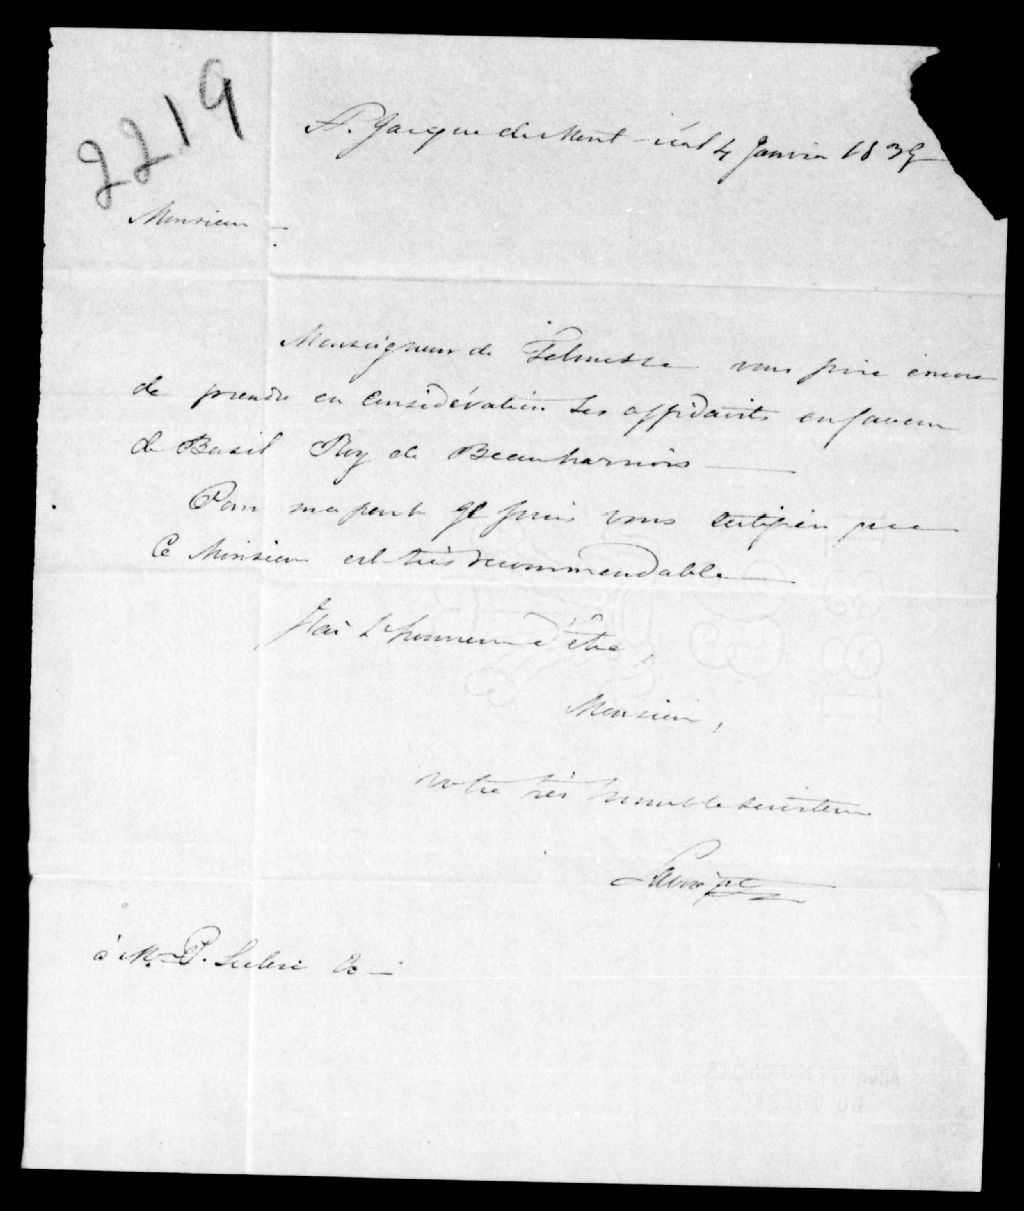 2219
St. Jacque de Mont-réal 4 Janvier 1839
Monsieur —
Monseigneur de Telmesse vous prie encore
de prendre en considération les affidavits en faveur
de Basil Roy de Beauharnois —
Pour ma part je puis vous certifier que
ce Monsieur est très recommendable —
J'ai l'honneur d'être,
Monsieur,
votre très humble serviteur
à Mr. P. Leclerc &c —